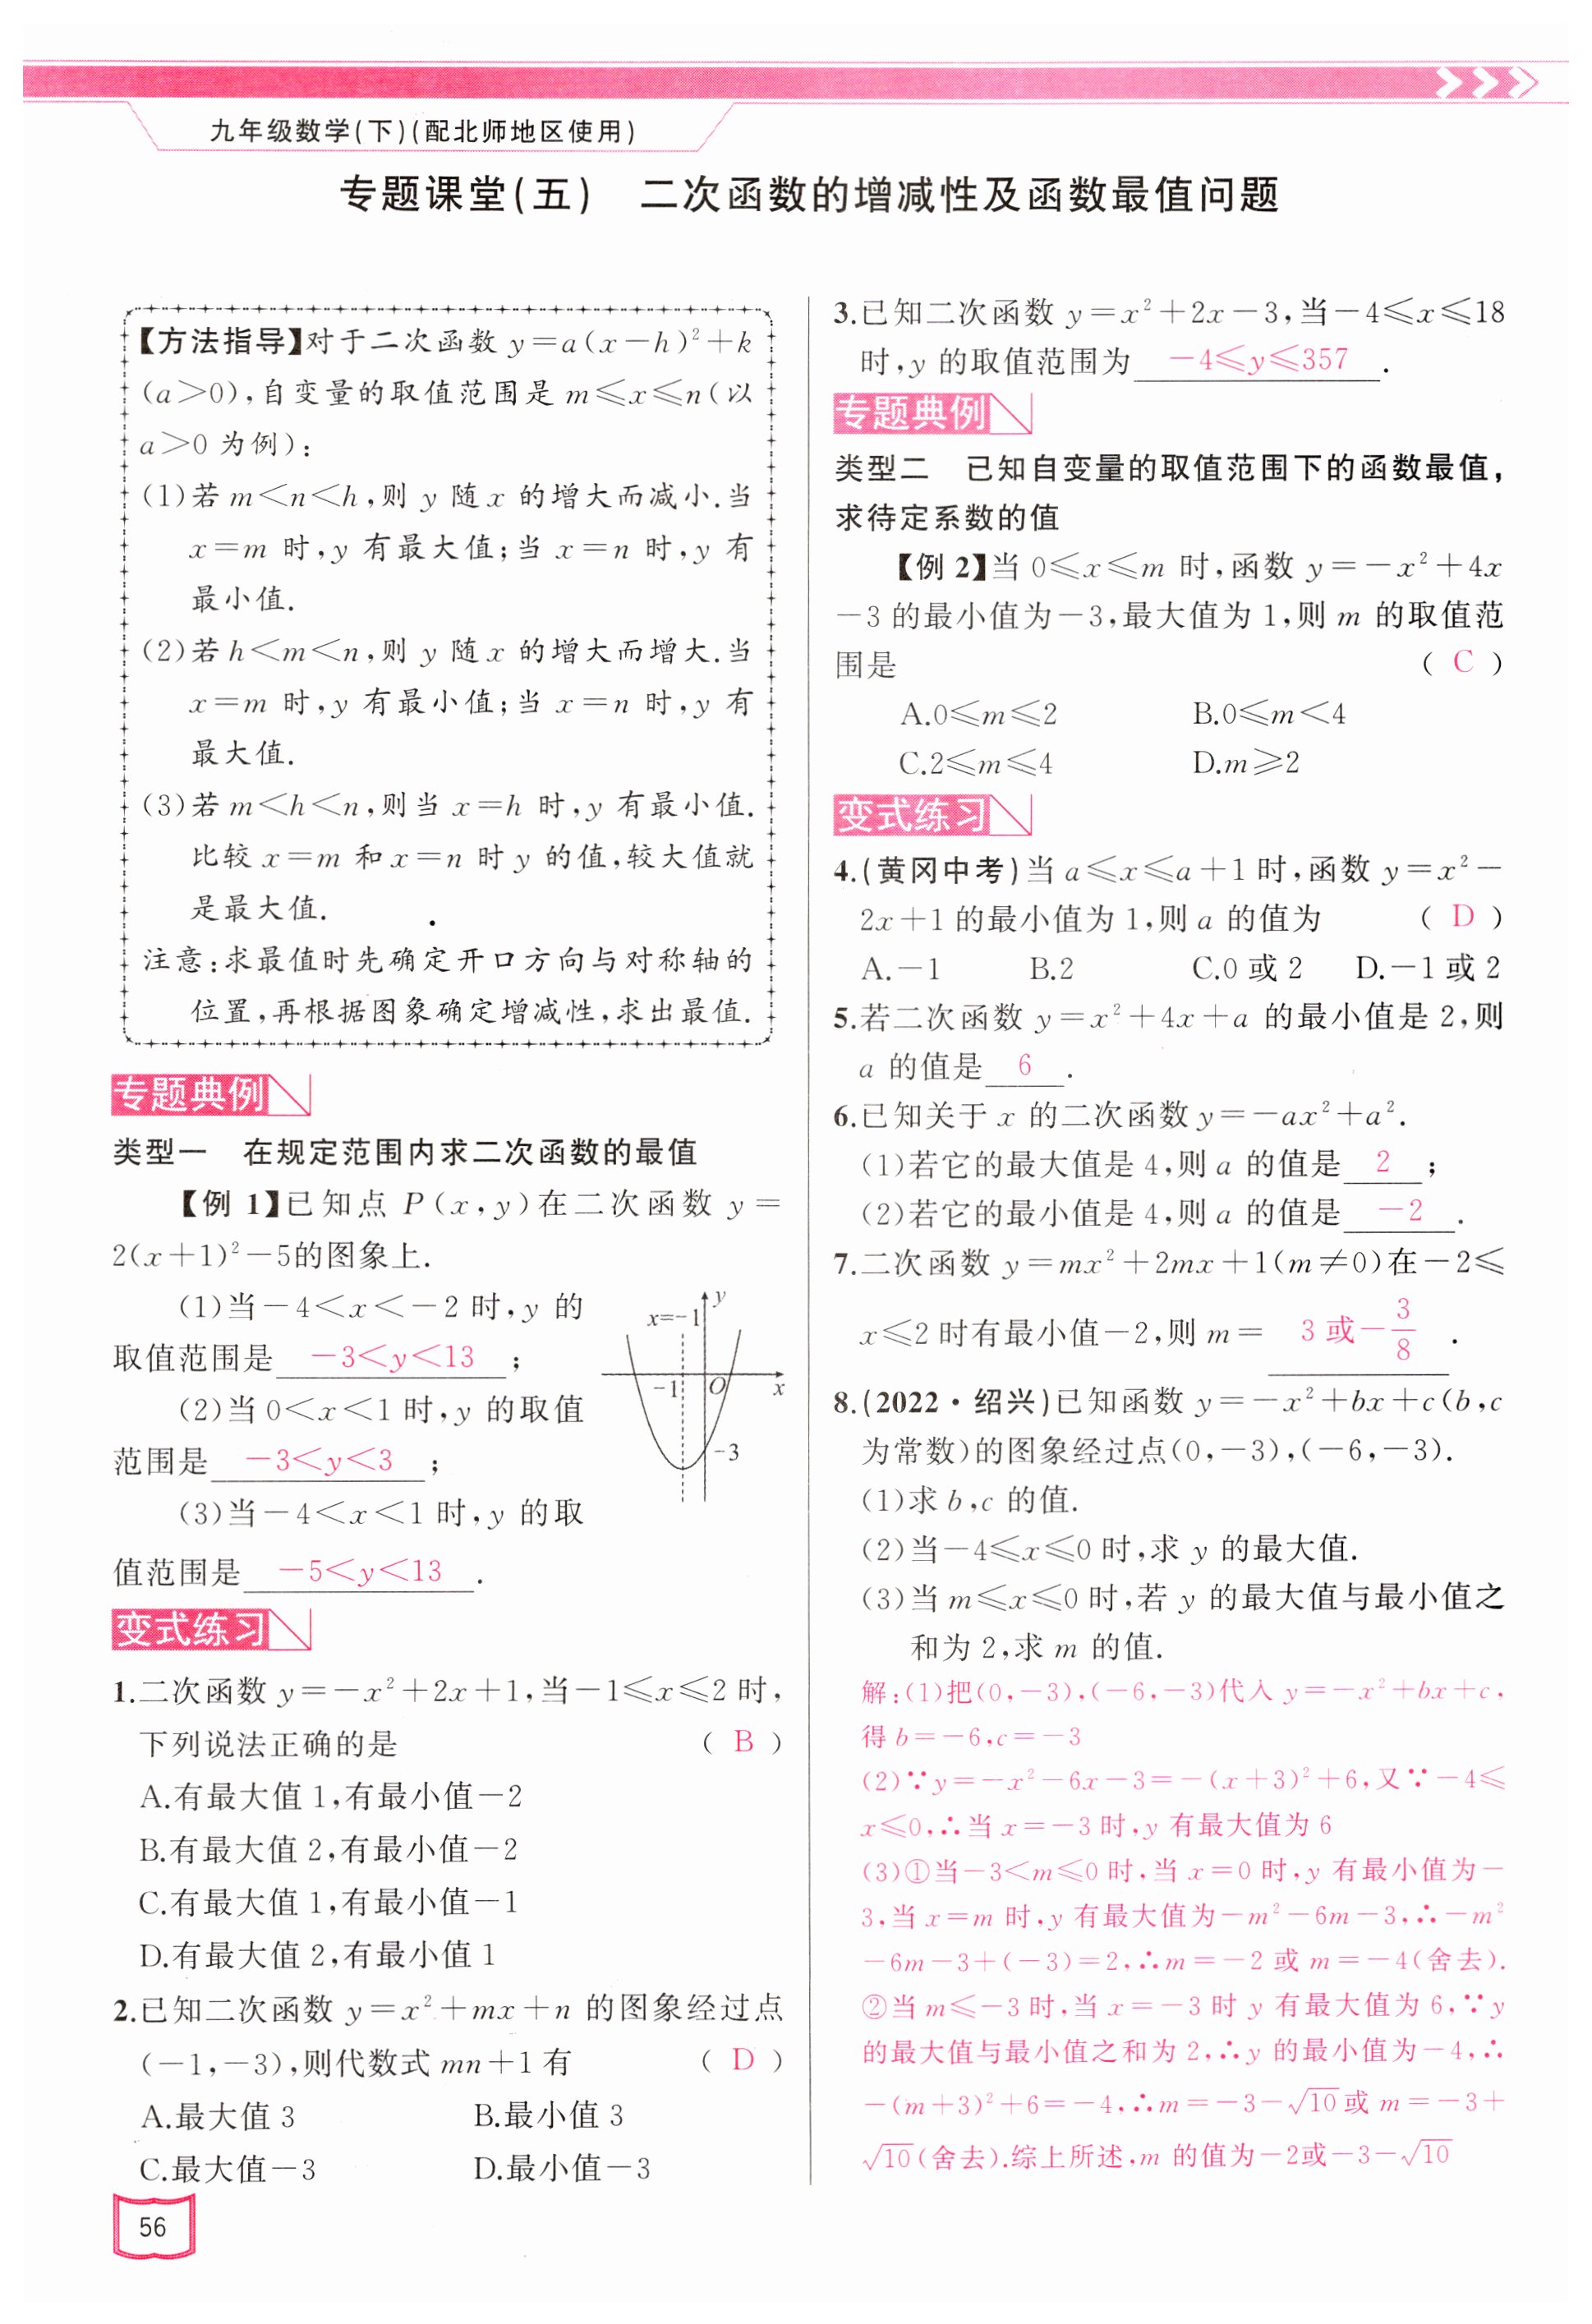 九年级数学(下)(配北师地区使用)
专题课堂(五) 二次函数的增减性及函数最值问题
【方法指导】对于二次函数 y=a(x-h)²+k
(a>0),自变量的取值范围是 m≤x≤n(以
a>0 为例):
(1)若 m<n<h,则 y 随 x 的增大而减小.当
x=m 时,y 有最大值;当 x=n 时,y 有
最小值.
(2)若 h<m<n,则 y 随 x 的增大而增大.当
x=m 时,y 有最小值;当 x=n 时,y 有
最大值.
(3)若 m<h<n,则当 x=h 时,y 有最小值.
比较 x=m 和 x=n 时 y 的值,较大值就
是最大值.
注意:求最值时先确定开口方向与对称轴的
位置,再根据图象确定增减性,求出最值.
专题典例
类型一 在规定范围内求二次函数的最值
【例 1】已知点 P(x,y)在二次函数 y=
2(x+1)²-5的图象上.
(1)当-4<x<-2 时,y 的
取值范围是 -3<y<13 ;
(2)当 0<x<1 时,y 的取值
范围是 -3<y<3 ;
(3)当-4<x<1 时,y 的取
值范围是 -5<y<13 .
x=-1
y
-1
O
x
-3
变式练习
1.二次函数 y=-x²+2x+1,当-1≤x≤2 时,
下列说法正确的是 ( B )
A.有最大值 1,有最小值-2
B.有最大值 2,有最小值-2
C.有最大值 1,有最小值-1
D.有最大值 2,有最小值 1
2.已知二次函数 y=x²+mx+n 的图象经过点
(-1,-3),则代数式 mn+1 有 ( D )
A.最大值 3 B.最小值 3
C.最大值-3 D.最小值-3
56
3.已知二次函数 y=x²+2x-3,当-4≤x≤18
时,y 的取值范围为 -4≤y≤357 .
专题典例
类型二 已知自变量的取值范围下的函数最值,
求待定系数的值
【例 2】当 0≤x≤m 时,函数 y=-x²+4x
-3 的最小值为-3,最大值为 1,则 m 的取值范
围是 ( C )
A.0≤m≤2 B.0≤m<4
C.2≤m≤4 D.m≥2
变式练习
4.(黄冈中考)当 a≤x≤a+1 时,函数 y=x²-
2x+1 的最小值为 1,则 a 的值为 ( D )
A.-1 B.2 C.0 或 2 D.-1 或 2
5.若二次函数 y=x²+4x+a 的最小值是 2,则
a 的值是 6 .
6.已知关于 x 的二次函数 y=-ax²+a².
(1)若它的最大值是 4,则 a 的值是 2 ;
(2)若它的最小值是 4,则 a 的值是 -2 .
7.二次函数 y=mx²+2mx+1(m≠0)在-2≤
x≤2 时有最小值-2,则 m= 3 或-3/8 .
8.(2022·绍兴)已知函数 y=-x²+bx+c(b,c
为常数)的图象经过点(0,-3),(-6,-3).
(1)求 b,c 的值.
(2)当-4≤x≤0 时,求 y 的最大值.
(3)当 m≤x≤0 时,若 y 的最大值与最小值之
和为 2,求 m 的值.
解:(1)把(0,-3),(-6,-3)代入 y=-x²+bx+c,
得 b=-6,c=-3
(2)∵y=-x²-6x-3=-(x+3)²+6,又∵-4≤
x≤0,∴当 x=-3 时,y 有最大值为 6
(3)①当-3<m≤0 时,当 x=0 时,y 有最小值为-
3,当 x=m 时,y 有最大值为-m²-6m-3,∴-m²
-6m-3+(-3)=2,∴m=-2 或 m=-4(舍去).
②当 m≤-3 时,当 x=-3 时 y 有最大值为 6,∵y
的最大值与最小值之和为 2,∴y 的最小值为-4,∴
-(m+3)²+6=-4,∴m=-3-√10或 m=-3+
√10(舍去).综上所述,m 的值为-2或-3-√10